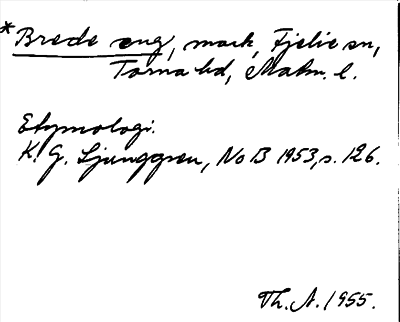 *Brede eng, mark, Fjelie sn,
Torna hd, Malm. l.
Etymologi.
K. G. Ljunggren, NoB 1953, s. 126.
Th. A. 1955.